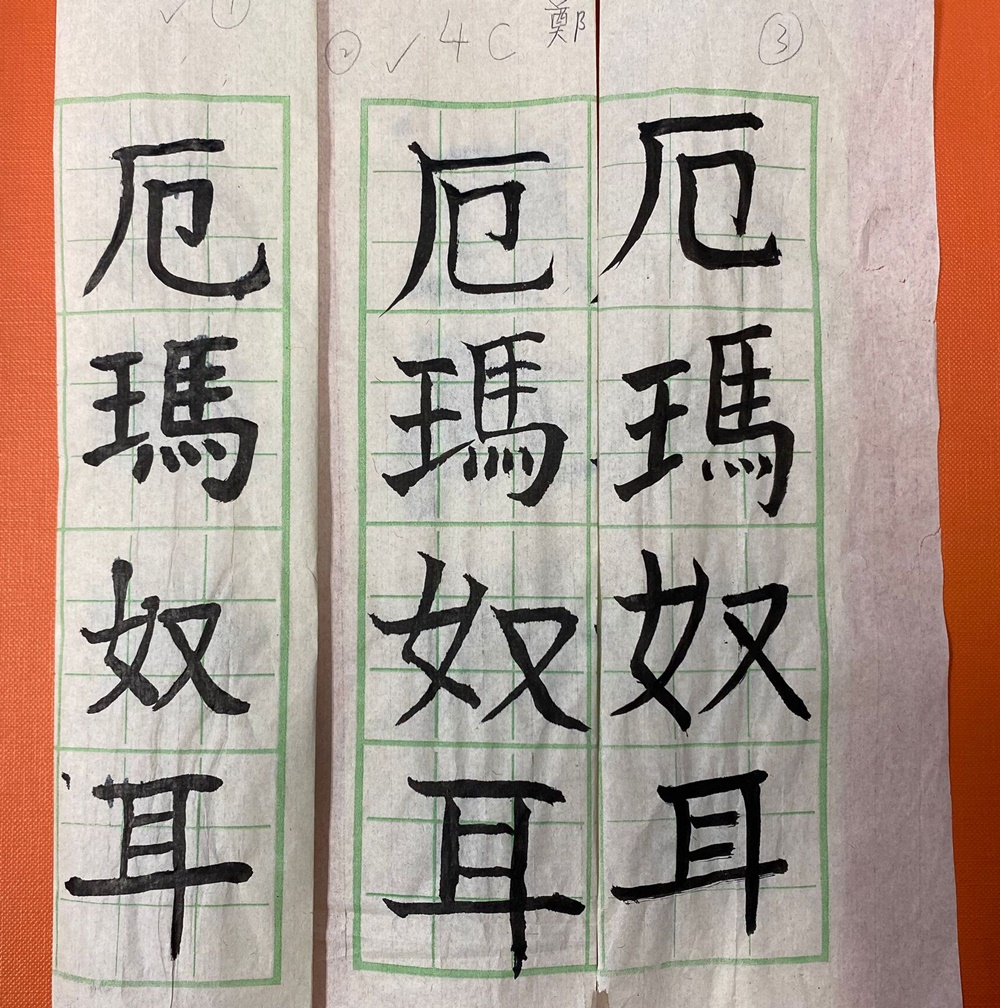 ✓ ①
② ✓ 4C 鄭
③
厄瑪奴耳
厄瑪奴耳
厄瑪奴耳